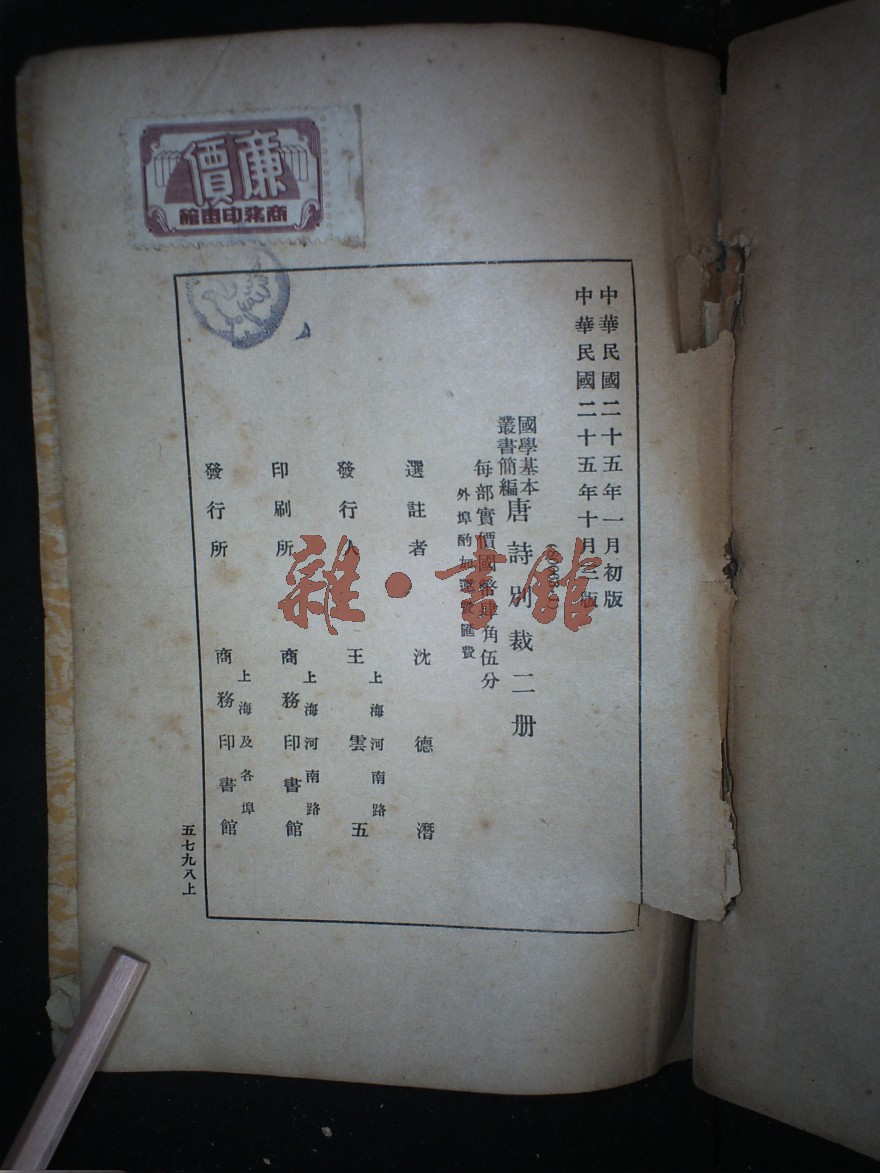 廉價
商務印書館
中華民國二十五年一月初版
中華民國二十五年十月三版
國學基本
叢書簡編
唐詩別裁二册
每部實價國幣肆角伍分
外埠酌加運費匯費
選註者 沈德潛
發行人 王雲五
上海河南路
印刷所 商務印書館
上海河南路
發行所 商務印書館
上海及各埠
五七九八上
雜·書館